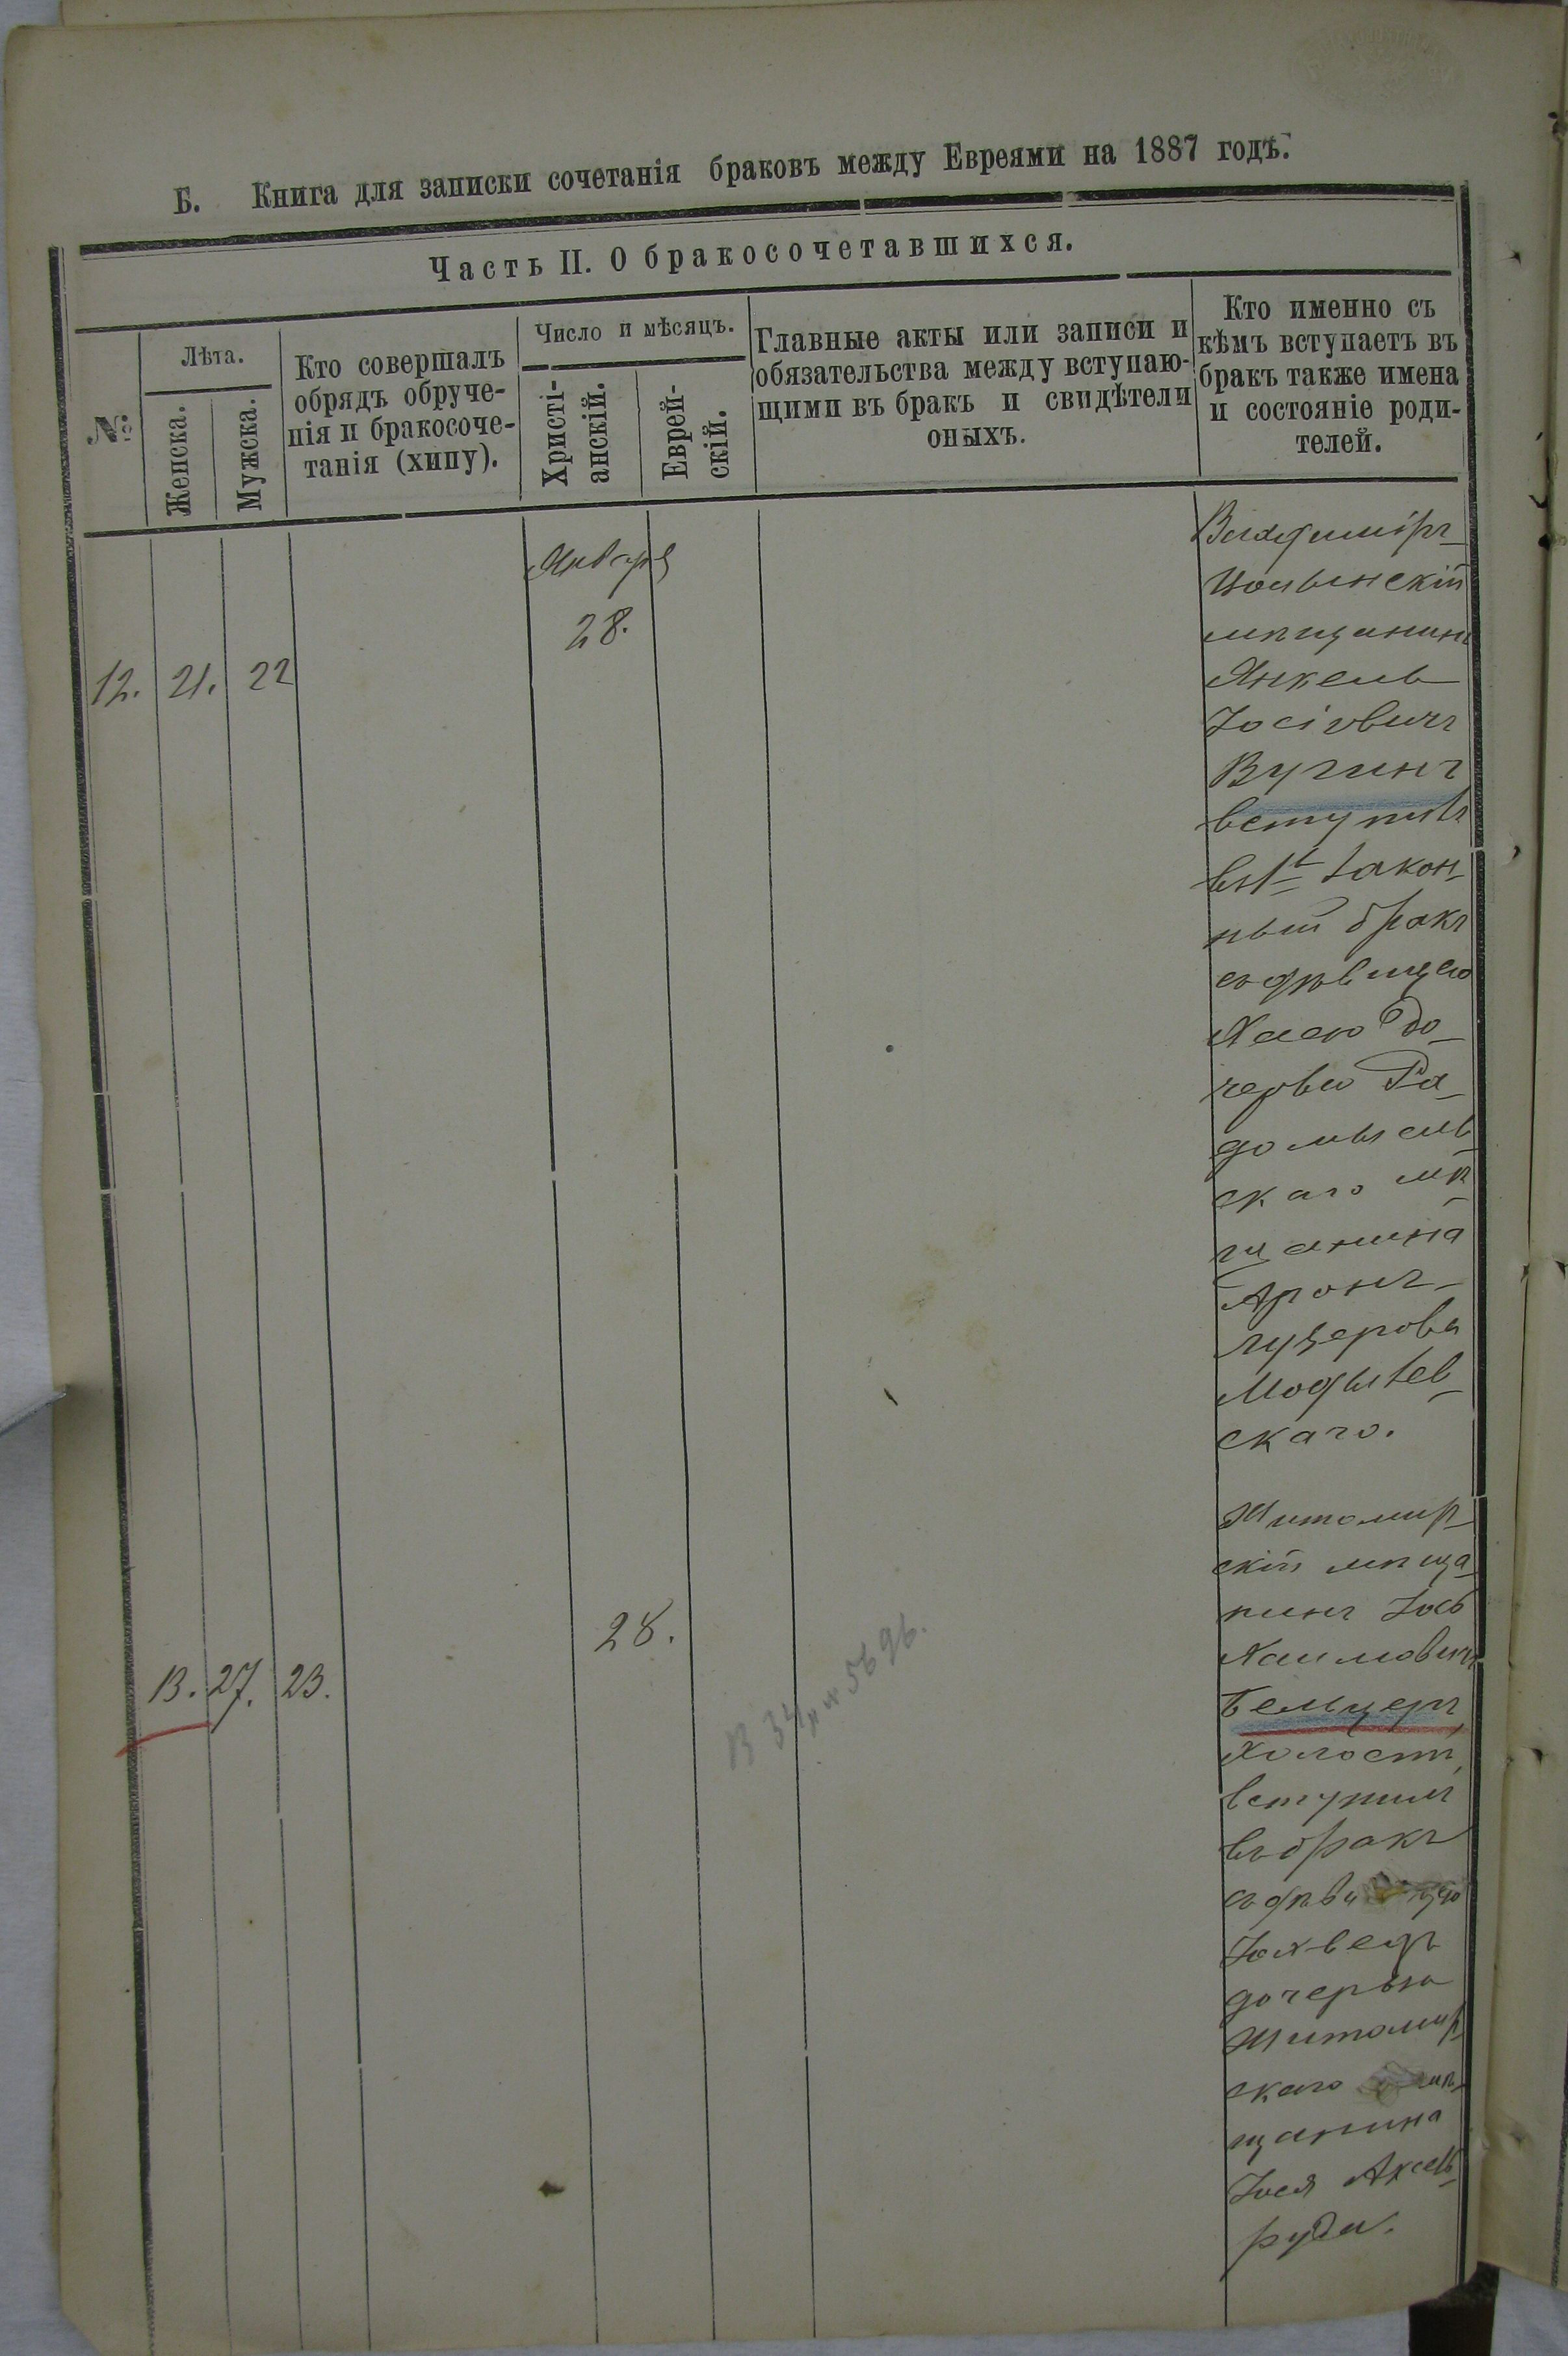 Б. Книга для записки сочетанія браковъ между Евреями на 1887 годъ.
Часть II. О бракосочетавшихся.
№
Лѣта.
Женска.
Мужска.
Кто совершалъ
обрядъ обруче-
нія и бракосоче-
танія (хипу).
Число и мѣсяцъ.
Христі-
анскій.
Еврей-
скій.
Главные акты или записи и
обязательства между вступаю-
щими въ бракъ и свидѣтели
оныхъ.
Кто именно съ
кѣмъ вступаетъ въ
бракъ также имена
и состояніе роди-
телей.
12. 21. 22
Января
28.
Владиміръ-
Волынскій
мѣщанинъ
Янкель
Іосіовичъ
Вугинъ
вступилъ
въ 1й закон-
ный бракъ
съ дѣвицею
Хаею до-
черью Ра-
домысль-
скаго мѣ-
щанина
Аронъ-
Лузерова
скаго.
13. 27. 23.
28.
Житомир-
скій мѣща-
нинъ Іось
Хаимовичъ
Бельцеръ,
холостъ,
вступилъ
въ бракъ
съ дѣвицею
Іохведъ
дочерью
Житомир-
скаго мѣ-
щанина
Іося Аксель-
руда.